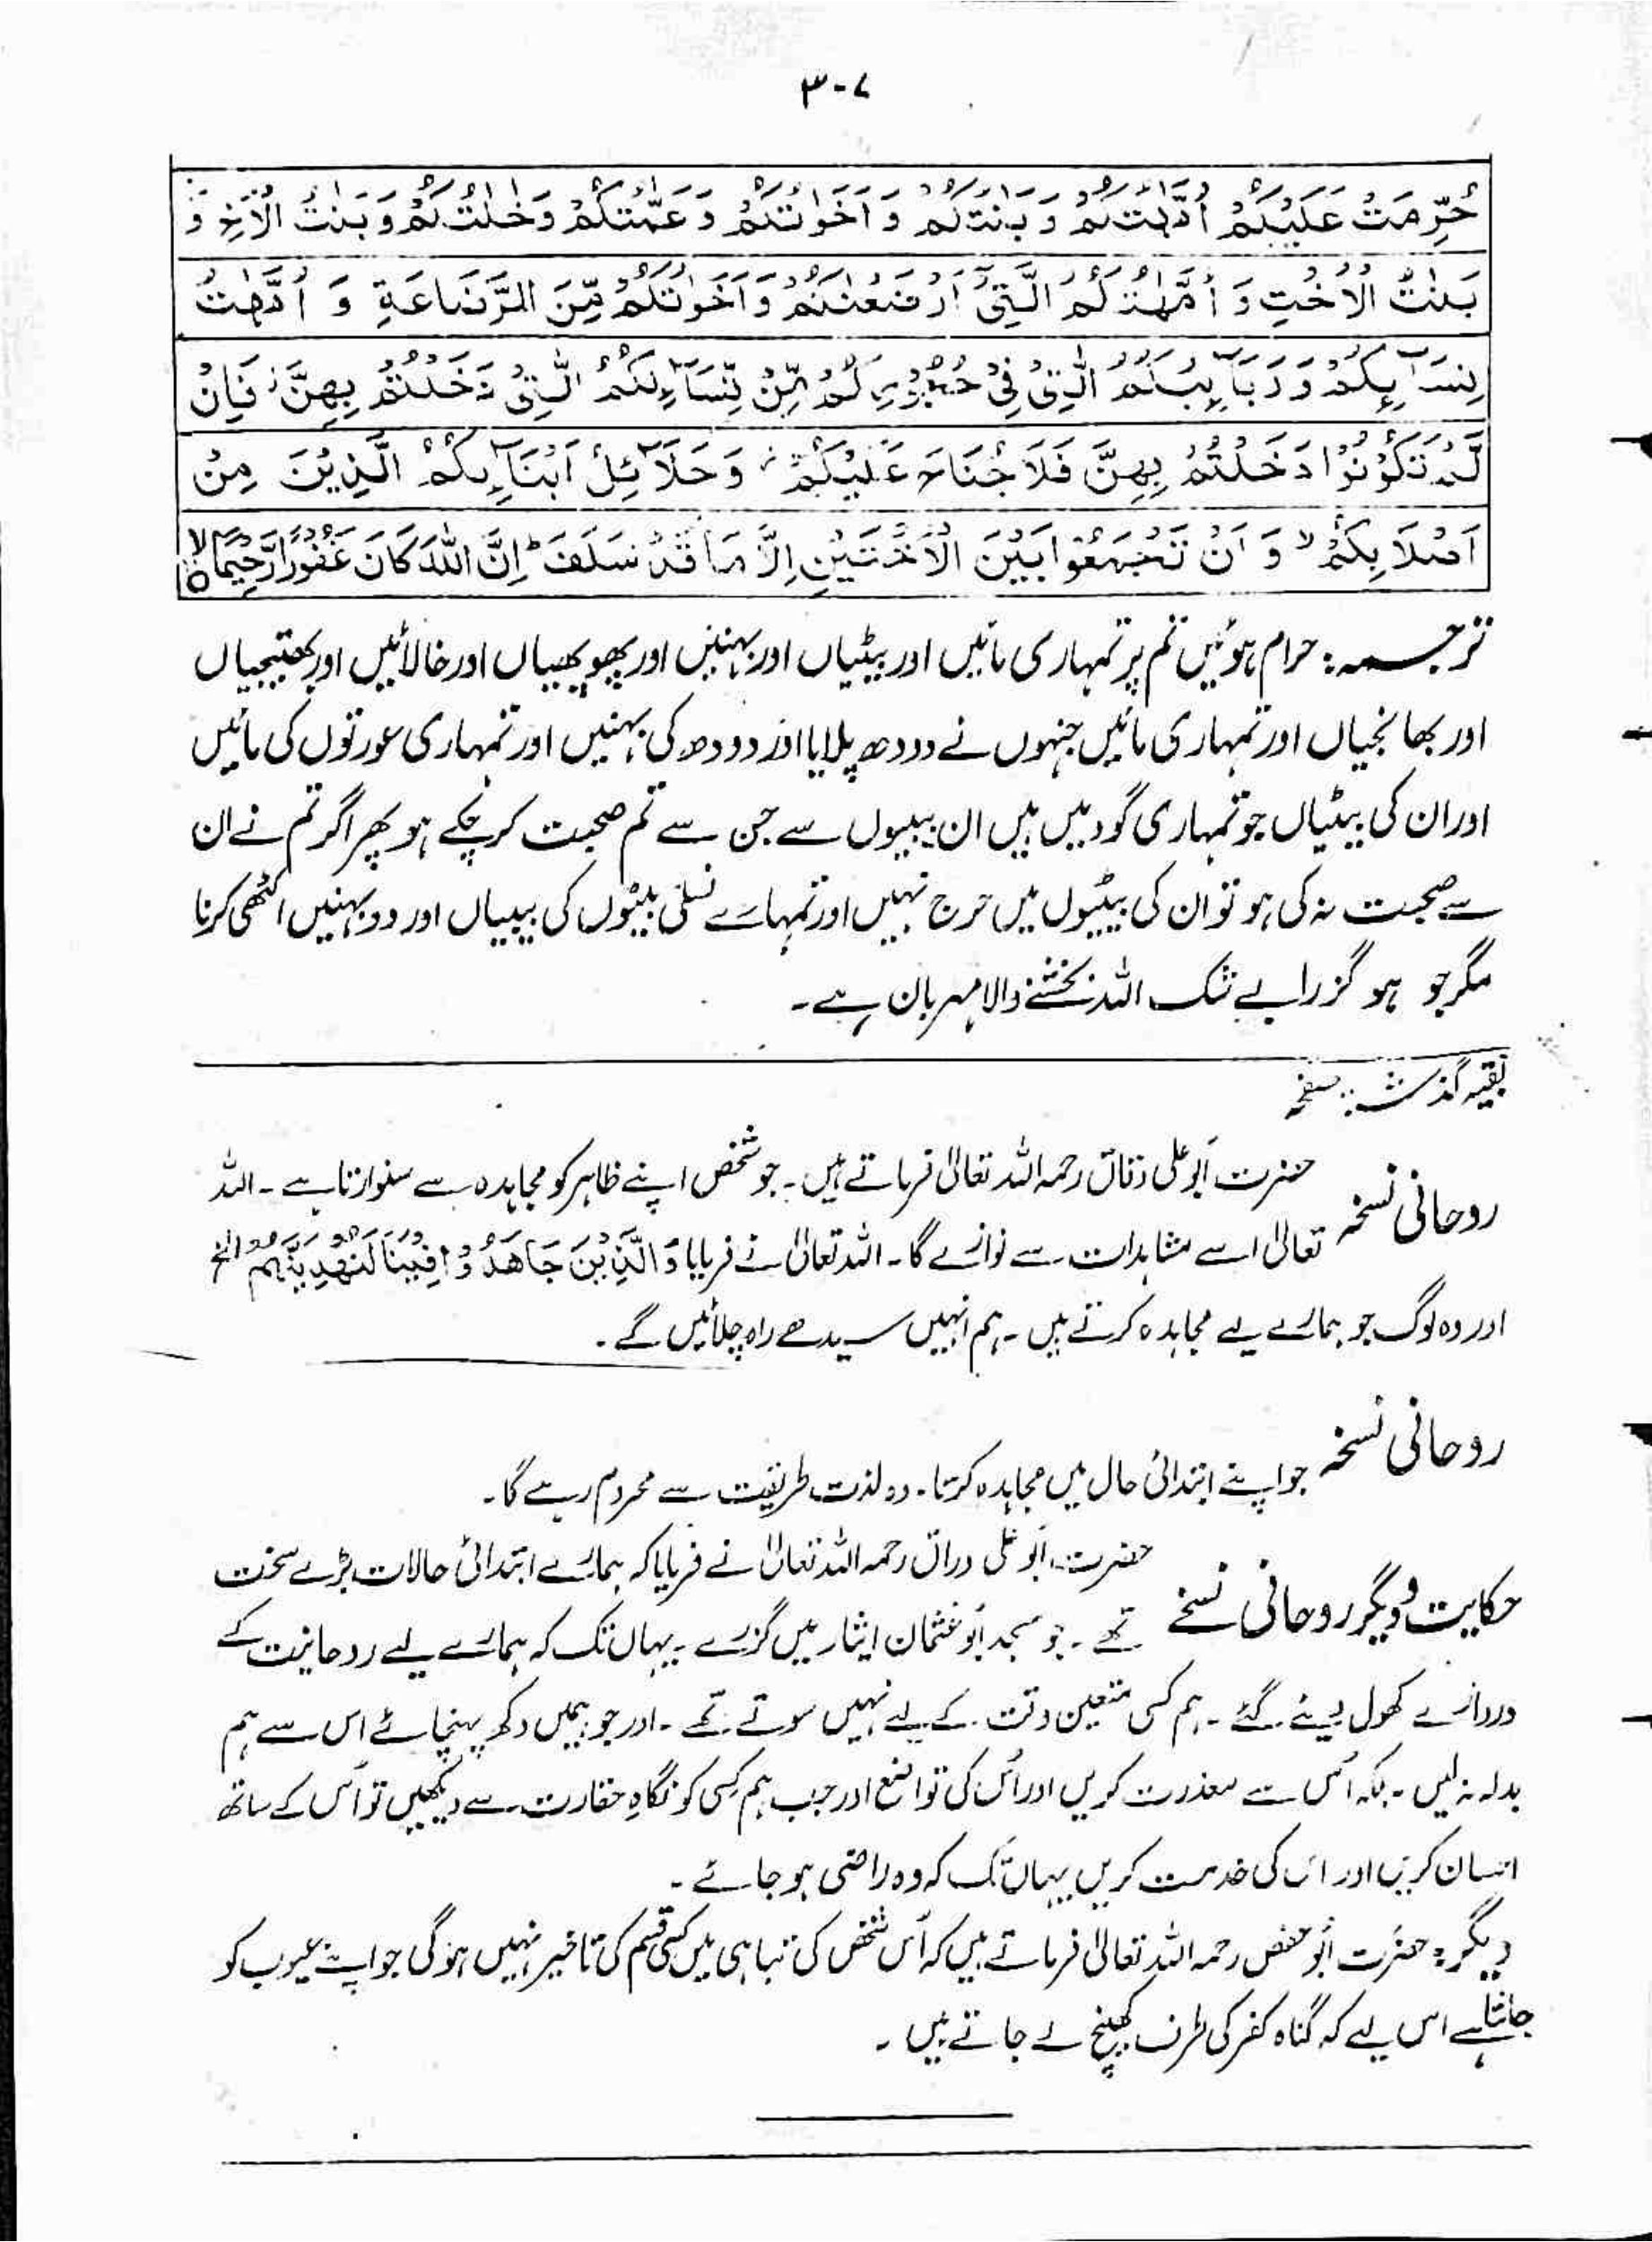 ۳۰۷
حُرِّمَتْ عَلَيْكُمْ اُمَّهٰتُكُمْ وَبَنٰتُكُمْ وَاَخَوٰتُكُمْ وَعَمّٰتُكُمْ وَخٰلٰتُكُمْ وَبَنٰتُ الْاَخِ وَ
بَنٰتُ الْاُخْتِ وَ اُمَّهٰتُكُمُ الّٰتِیْۤ اَرْضَعْنَكُمْ وَاَخَوٰتُكُمْ مِّنَ الرَّضَاعَةِ وَ اُمَّهٰتُ
نِسَآئِكُمْ وَرَبَآئِبُكُمُ الّٰتِیْ فِیْ حُجُوْرِكُمْ مِّنْ نِّسَآئِكُمُ الّٰتِیْ دَخَلْتُمْ بِهِنَّ ز فَاِنْ
لَّمْ تَكُوْنُوْا دَخَلْتُمْ بِهِنَّ فَلَا جُنَاحَ عَلَيْكُمْ ز وَحَلَآئِلُ اَبْنَآئِكُمُ الَّذِيْنَ مِنْ
اَصْلَابِكُمْ لا وَ اَنْ تَجْمَعُوْا بَيْنَ الْاُخْتَيْنِ اِلَّا مَا قَدْ سَلَفَ ط اِنَّ اللّٰهَ كَانَ غَفُوْرًا رَّحِيْمًا لا
ترجمہ: حرام ہوئیں تم پر تمہاری مائیں اور بیٹیاں اور بہنیں اور پھوپھیاں اور خالائیں اور بھتیجیاں
اور بھانجیاں اور تمہاری مائیں جنہوں نے دودھ پلایا اور دودھ کی بہنیں اور تمہاری عورتوں کی مائیں
اور ان کی بیٹیاں جو تمہاری گود میں ہیں ان بیبیوں سے جن سے تم صحبت کر چکے ہو پھر اگر تم نے ان
سے صحبت نہ کی ہو تو ان کی بیٹیوں میں حرج نہیں اور تمہارے نسلی بیٹوں کی بیبیاں اور دو بہنیں اکٹھی کرنا
مگر جو ہو گزرا بے شک اللہ بخشنے والا مہربان ہے۔
بقیہ گذشتہ صفحہ
روحانی نسخہ حضرت ابو علی دقاق رحمہ اللہ تعالیٰ فرماتے ہیں۔ جو شخص اپنے ظاہر کو مجاہدہ سے سنوارتا ہے۔ اللہ
تعالیٰ اسے مشاہدات سے نوازے گا۔ اللہ تعالیٰ نے فرمایا وَالَّذِيْنَ جَاهَدُوْا فِيْنَا لَنَهْدِيَنَّهُمْ الخ
اور وہ لوگ جو ہمارے لیے مجاہدہ کرتے ہیں۔ ہم انہیں سیدھے راہ چلائیں گے۔
روحانی نسخہ جو اپنے ابتدائی حال میں مجاہدہ کرتا۔ وہ لذت طریقت سے محروم رہے گا۔
حکایت و دیگر روحانی نسخے حضرت ابو علی دراق رحمہ اللہ تعالیٰ نے فرمایا کہ ہمارے ابتدائی حالات بڑے سخت
تھے۔ جو مسجد ابو عثمان ایثار میں گزرے۔ یہاں تک کہ ہمارے لیے روحانیت کے
دروازے کھول دیئے گئے۔ ہم کسی متعین وقت کے لیے نہیں سوتے تھے۔ اور جو ہمیں دکھ پہنچائے اس سے ہم
بدلہ نہ لیں۔ بلکہ اُس سے معذرت کریں اور اُس کی تواضع اور جب ہم کسی کو نگاہِ حقارت سے دیکھیں تو اُس کے ساتھ
احسان کریں اور اس کی خدمت کریں یہاں تک کہ وہ راضی ہو جائے۔
دیگر: حضرت ابو حفص رحمہ اللہ تعالیٰ فرماتے ہیں کہ اُس شخص کی تباہی میں کسی قسم کی تاخیر نہیں ہوگی جو اپنے عیوب کو
جانتا ہے اس لیے کہ گناہ کفر کی طرف کھینچ لے جاتے ہیں۔